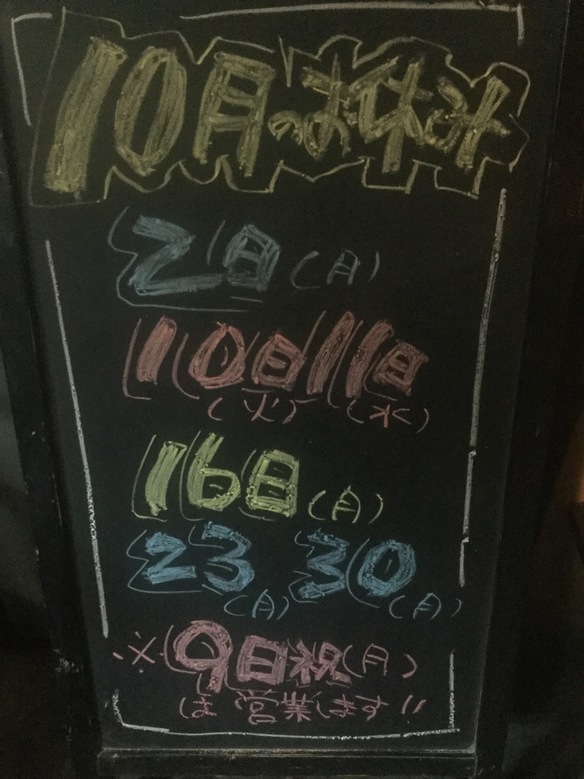 10月のお休み
2日(月)
10日11日
(火) (水)
16日(月)
23 30
(月) (月)
※9日祝(月)
は営業します!!